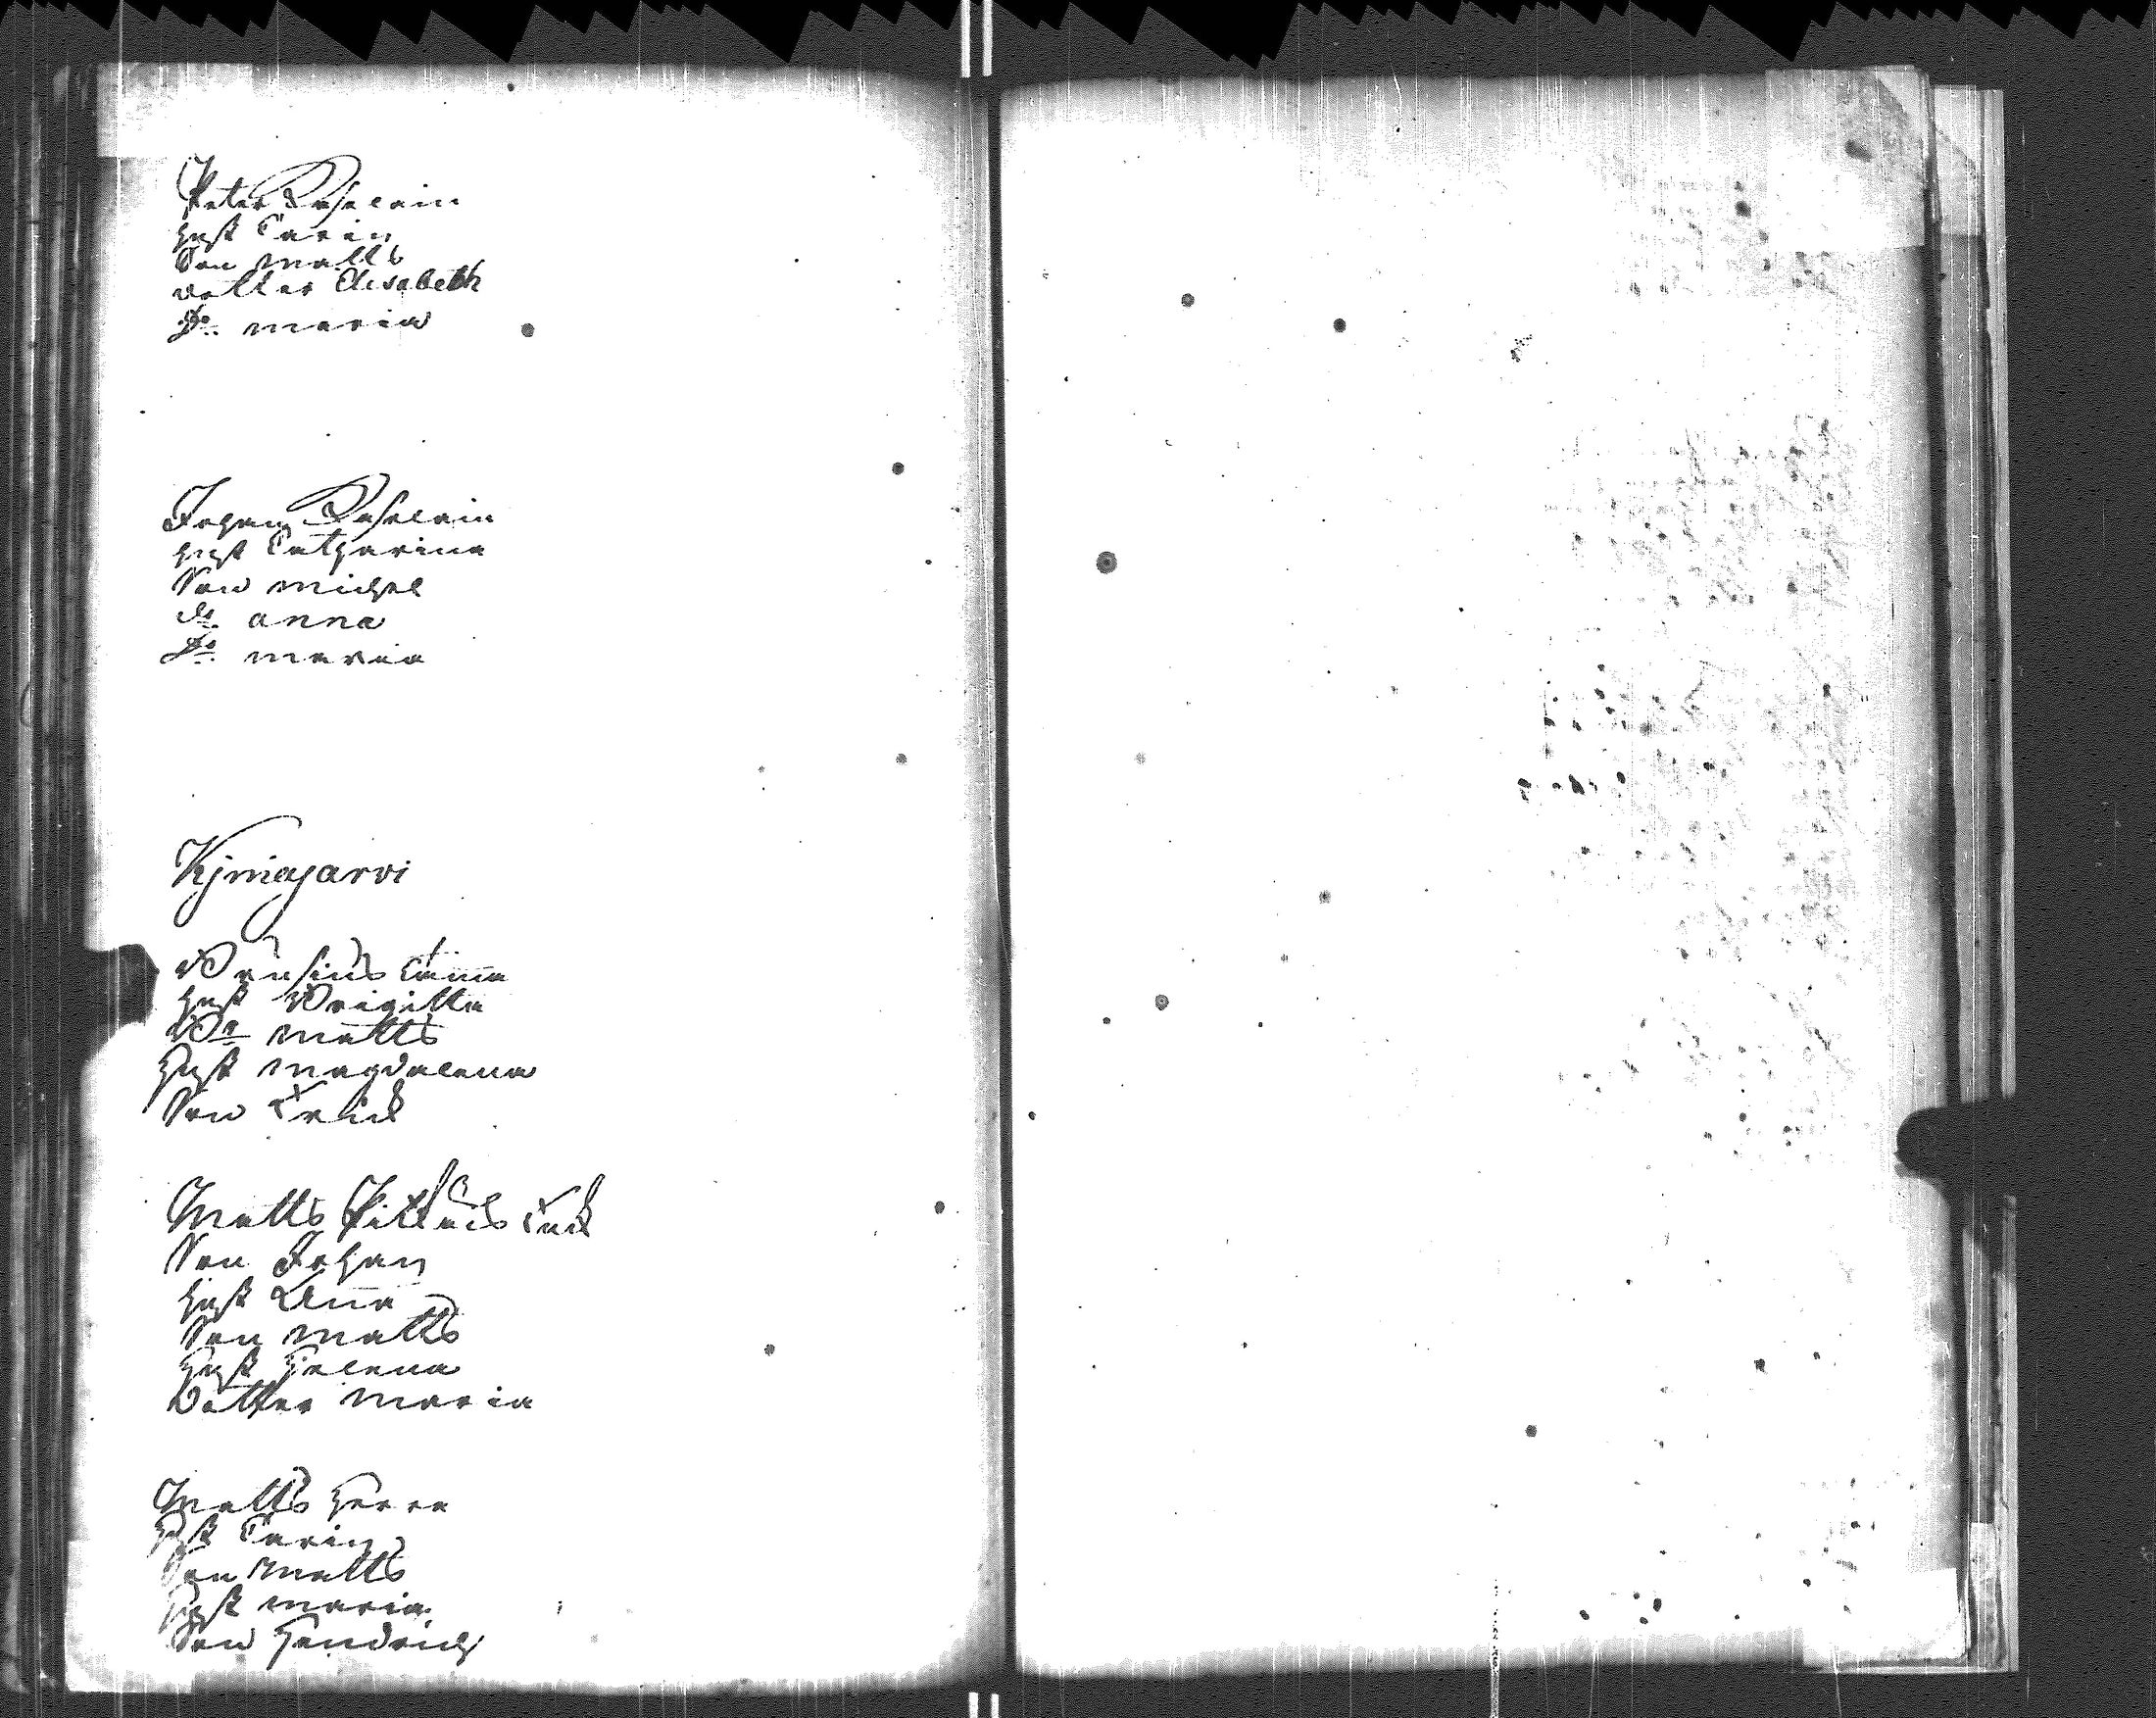 Peter
hust Carin
Son Matts
dotter Elisabeth
Do. Maria
Johan
hust Catharina
Son Michel
do. anna
Do. Maria
Kjmajarvi
hust Brigitta
Matts
Hust Magdalena
Son Erick
Matts
Son Johan
hust Anna
Son Matts
Hust Helena
Dotter Maria
Matts
Hust Carin
Son Matts
Hust Maria
Son Hendrich